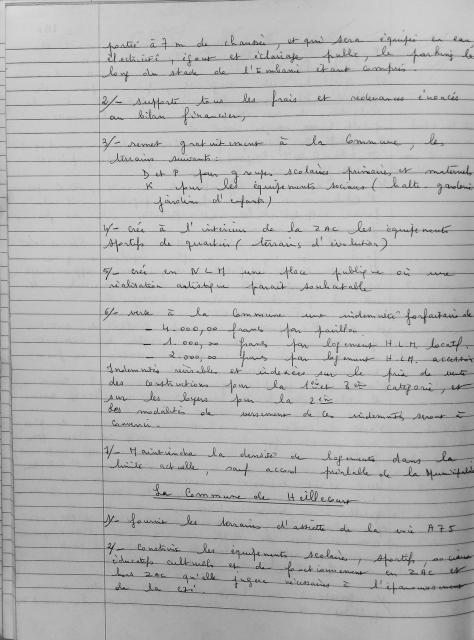 portée à 7 m de chaussée, et qui sera équipée en eau
électricité, égout et éclairage public, le parking le
long du stade de l'Embanie étant compris.
2/- supporte tous les frais et redevances énoncés
au bilan financier,
3/- remet gratuitement à la Commune, les
terrains suivants :
D et P pour groupes scolaires primaires et maternels
K pour les équipements sociaux ( halte-garderie
jardins d'enfants )
4/- crée à l'intérieur de la ZAC les équipements
sportifs de quartier ( terrains d'évolution )
5/- crée en NLM une place publique où une
réalisation artistique parait souhaitable
6/- verse à la Commune une indemnité forfaitaire de
- 4.000,00 francs par pavillon
- 1.000,00 francs par logement H.L.M. locatif.
- 2.000,00 francs par logement H.L.M. accession
Indemnités révisables et indexées sur le prix de vente
des constructions pour la 1ère et 3è catégorie, et
sur les loyers pour la 2è
Les modalités de versement de ces indemnités seront à
convenir.
7/- Maintiendra la densité de logements dans la
limite actuelle, sauf accord préalable de la Municipalité
La Commune de Heillecourt
1/- fournit les terrains d'assiette de la voie A75
2/- Construit les équipements scolaires, sportifs, sociaux
éducatifs culturels et de fonctionnement en ZAC et
hors ZAC qu'elle jugera nécessaires à l'épanouissement
de la cité